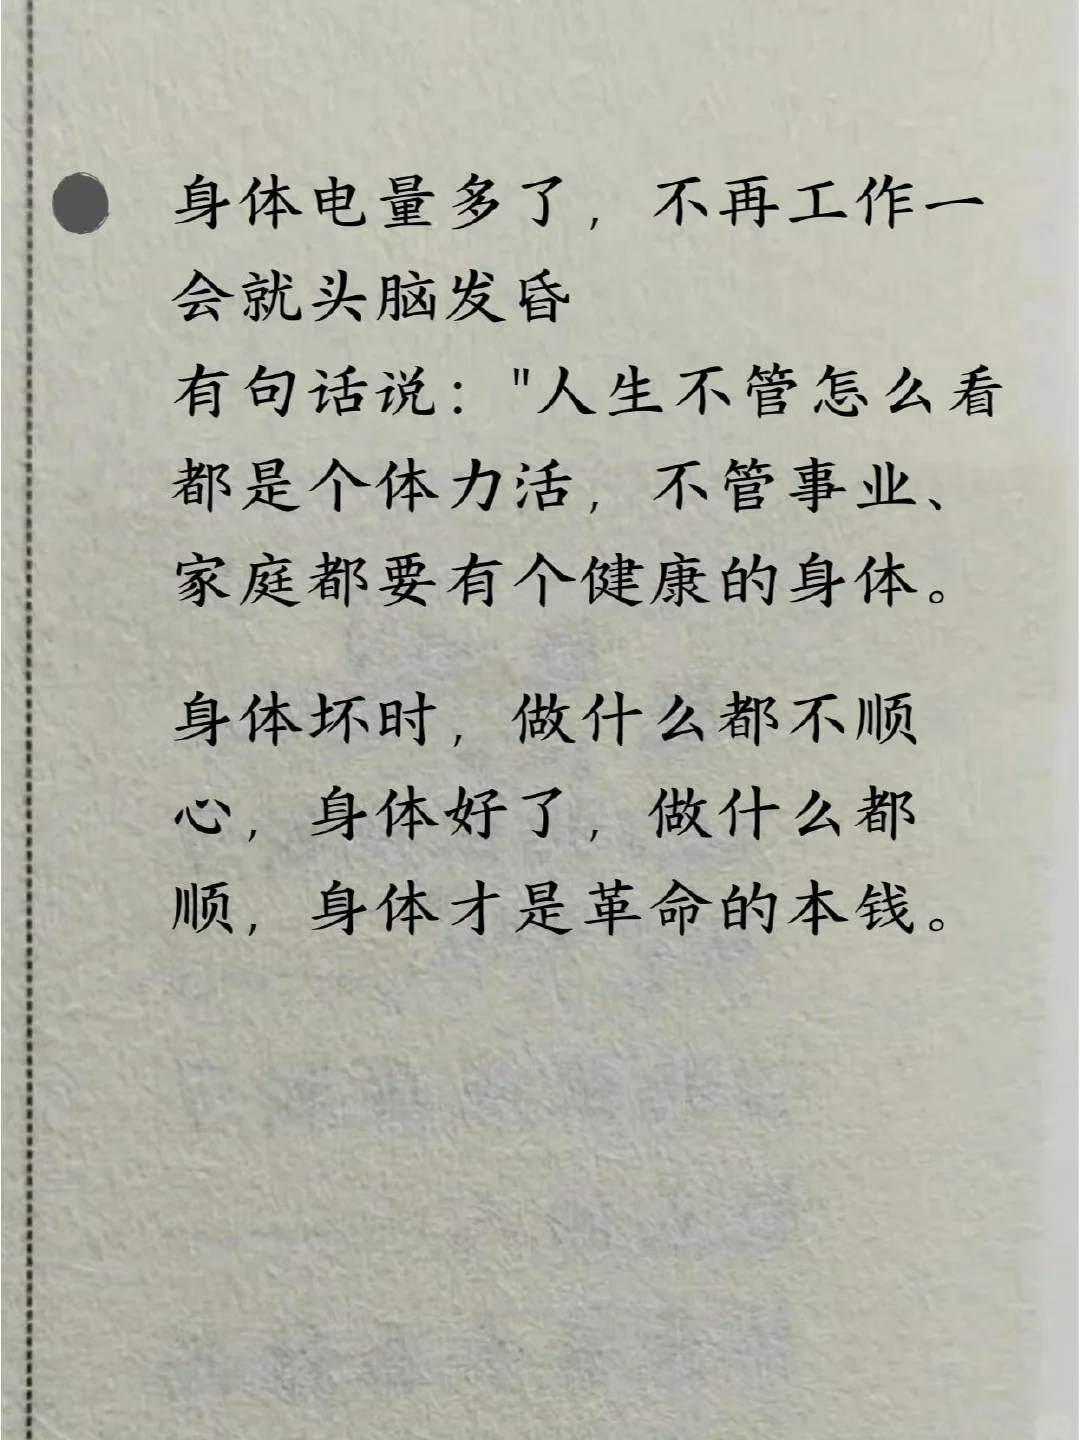 身体电量多了，不再工作一
会就头脑发昏
有句话说："人生不管怎么看
都是个体力活，不管事业、
家庭都要有个健康的身体。
身体坏时，做什么都不顺
心，身体好了，做什么都
顺，身体才是革命的本钱。